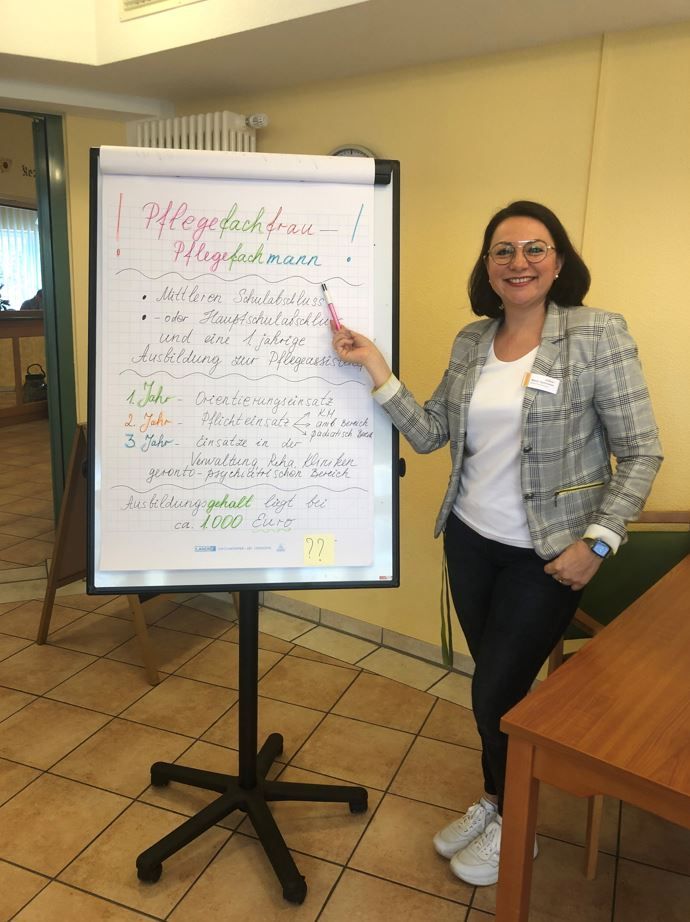 ! Pflegefachfrau – !
Pflegefachmann
• Mittleren Schulabschluss
• - oder Hauptschulabschluss
und eine 1 jährige
Ausbildung zur Pflegeassistenz
1. Jahr - Orientierungseinsatz
2. Jahr - Pflichteinsatz
KH
amb Bereich
pädiatrisch Bereich
3 Jahr - Einsätze in der
Verwaltung, Reha, Kliniken
geronto-psychiatrischen Bereich
Ausbildungsgehalt liegt bei
ca. 1000 Euro
??